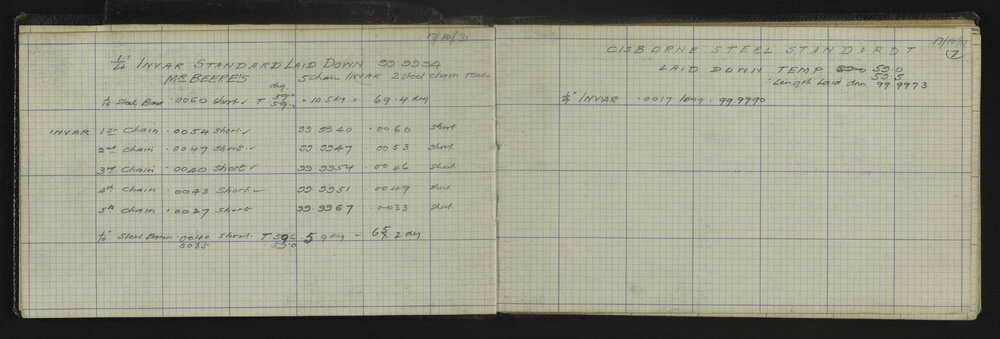 17/10/31
1/4" INVAR STANDARD LAID DOWN 99 9994
Mc BEERE'S 5 chain INVAR 2 steel chain
deg
1/10 Steel Band .0060 short ✓ T 59.0 = 10.5 deg = 69.4 deg
INVAR 1st Chain .0054 short ✓ 99 9940 .0060 short
2nd Chain .0047 short ✓ 99 9947 .0053 short
3rd Chain .0040 short ✓ 99 9954 .0046 short
4th Chain .0043 short ✓ 99 9951 .0049 short
5th Chain .0027 short 99.9967 .0033 short
1/10" Steel Band .0040 short T 5 9 deg = 65.2 deg
0035 59.0
17/10/31
GISBORNE STEEL STANDARD T
7
LAID DOWN TEMP 59.0
59.5
Length Laid dn 99 9973
1/4" INVAR .0017 long . 99 9990